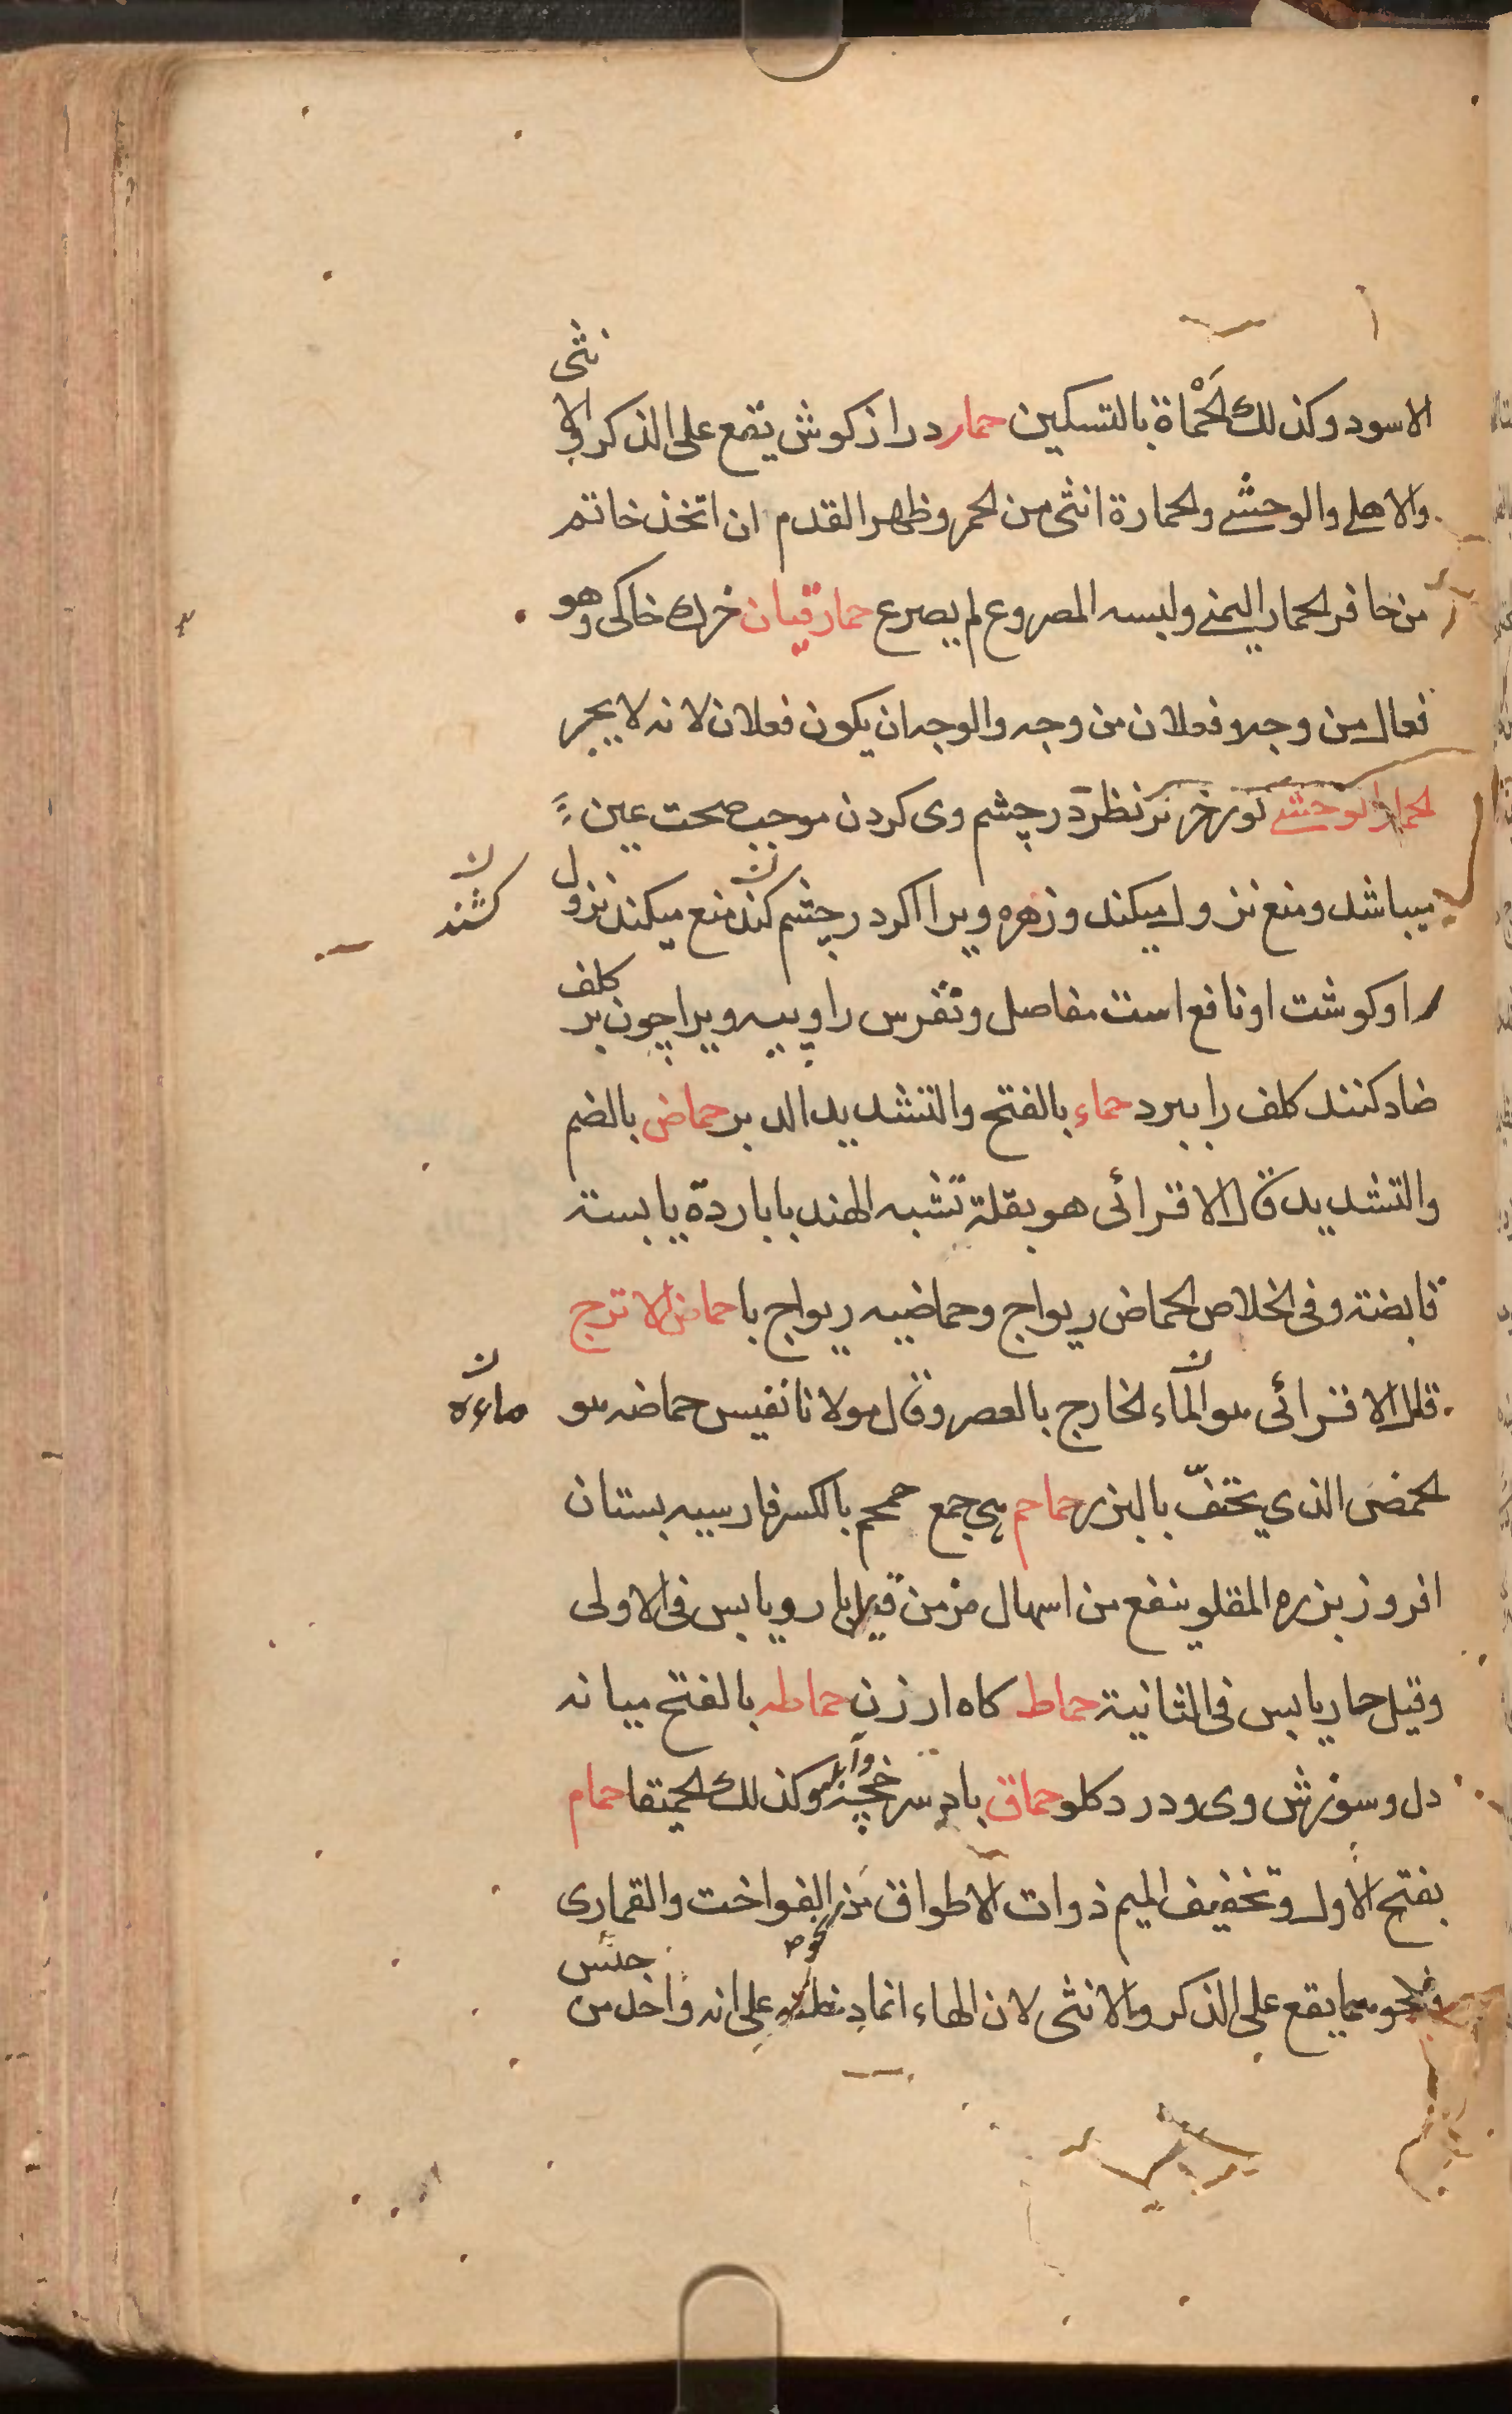 الاسود وكذلك الحَمْأة بالتسكين حمار دراز كوش يقع على الذكر والانثى
والاهلے والوحشے والحمارة انثى من الحمر وظهر القدم ان اتخذ خاتم
من حافر الحمار اليمنے ولبسه المصروع لم يصرع حمارقبان خرك خاكى وهو
فعال من وجه وفعلان من وجه والوجه ان يكون فعلان لانه لا يجر
الحمار الوحشے كور خر نر نظر در چشم وى كردن موجب صحت عين
ميباشد ومنع نزول ميكند وزهره ويرا اكر در چشم كند منع ميكند نزول
كشند
را وكوشت او نافع است مفاصل ونقرس را وپيه ويرا چون بر كلف
ضاد كنند كلف را ببرد حماء بالفتح والتشديد الدبر حماض بالضم
والتشديد قال الاقرائى هو بقلة تشبه الهندبا باردة يابسة
قابضة وفى الخلاص الحماض ريواج وحماضيه ريواج با حماض الاترج
قال الاقرائى هو الماء الخارج بالعصر وقال مولانا نفيس حماضه هو
ماءه
الحمض الذي يحتفّ بالبزر حماحم هى جمع حمحم بالكسر فارسيه بستان
افروز بزره المقلو ينفع من اسهال مزمن قيل بارد ويابس فى الاولى
وقيل حار يابس فى الثانية حماط كاه ارزن حماطه بالفتح ميانه
دل وسوزش وى ودرد كلو حماق باد سرخچه وآبله وكذلك الحميقا حمام
بفتح الاول وتخفيف الميم ذوات الاطواق من الفواخت والقمارى
ونحوهما يقع على الذكر والانثى لان الهاء انما دخلته على انه واحد من جنس